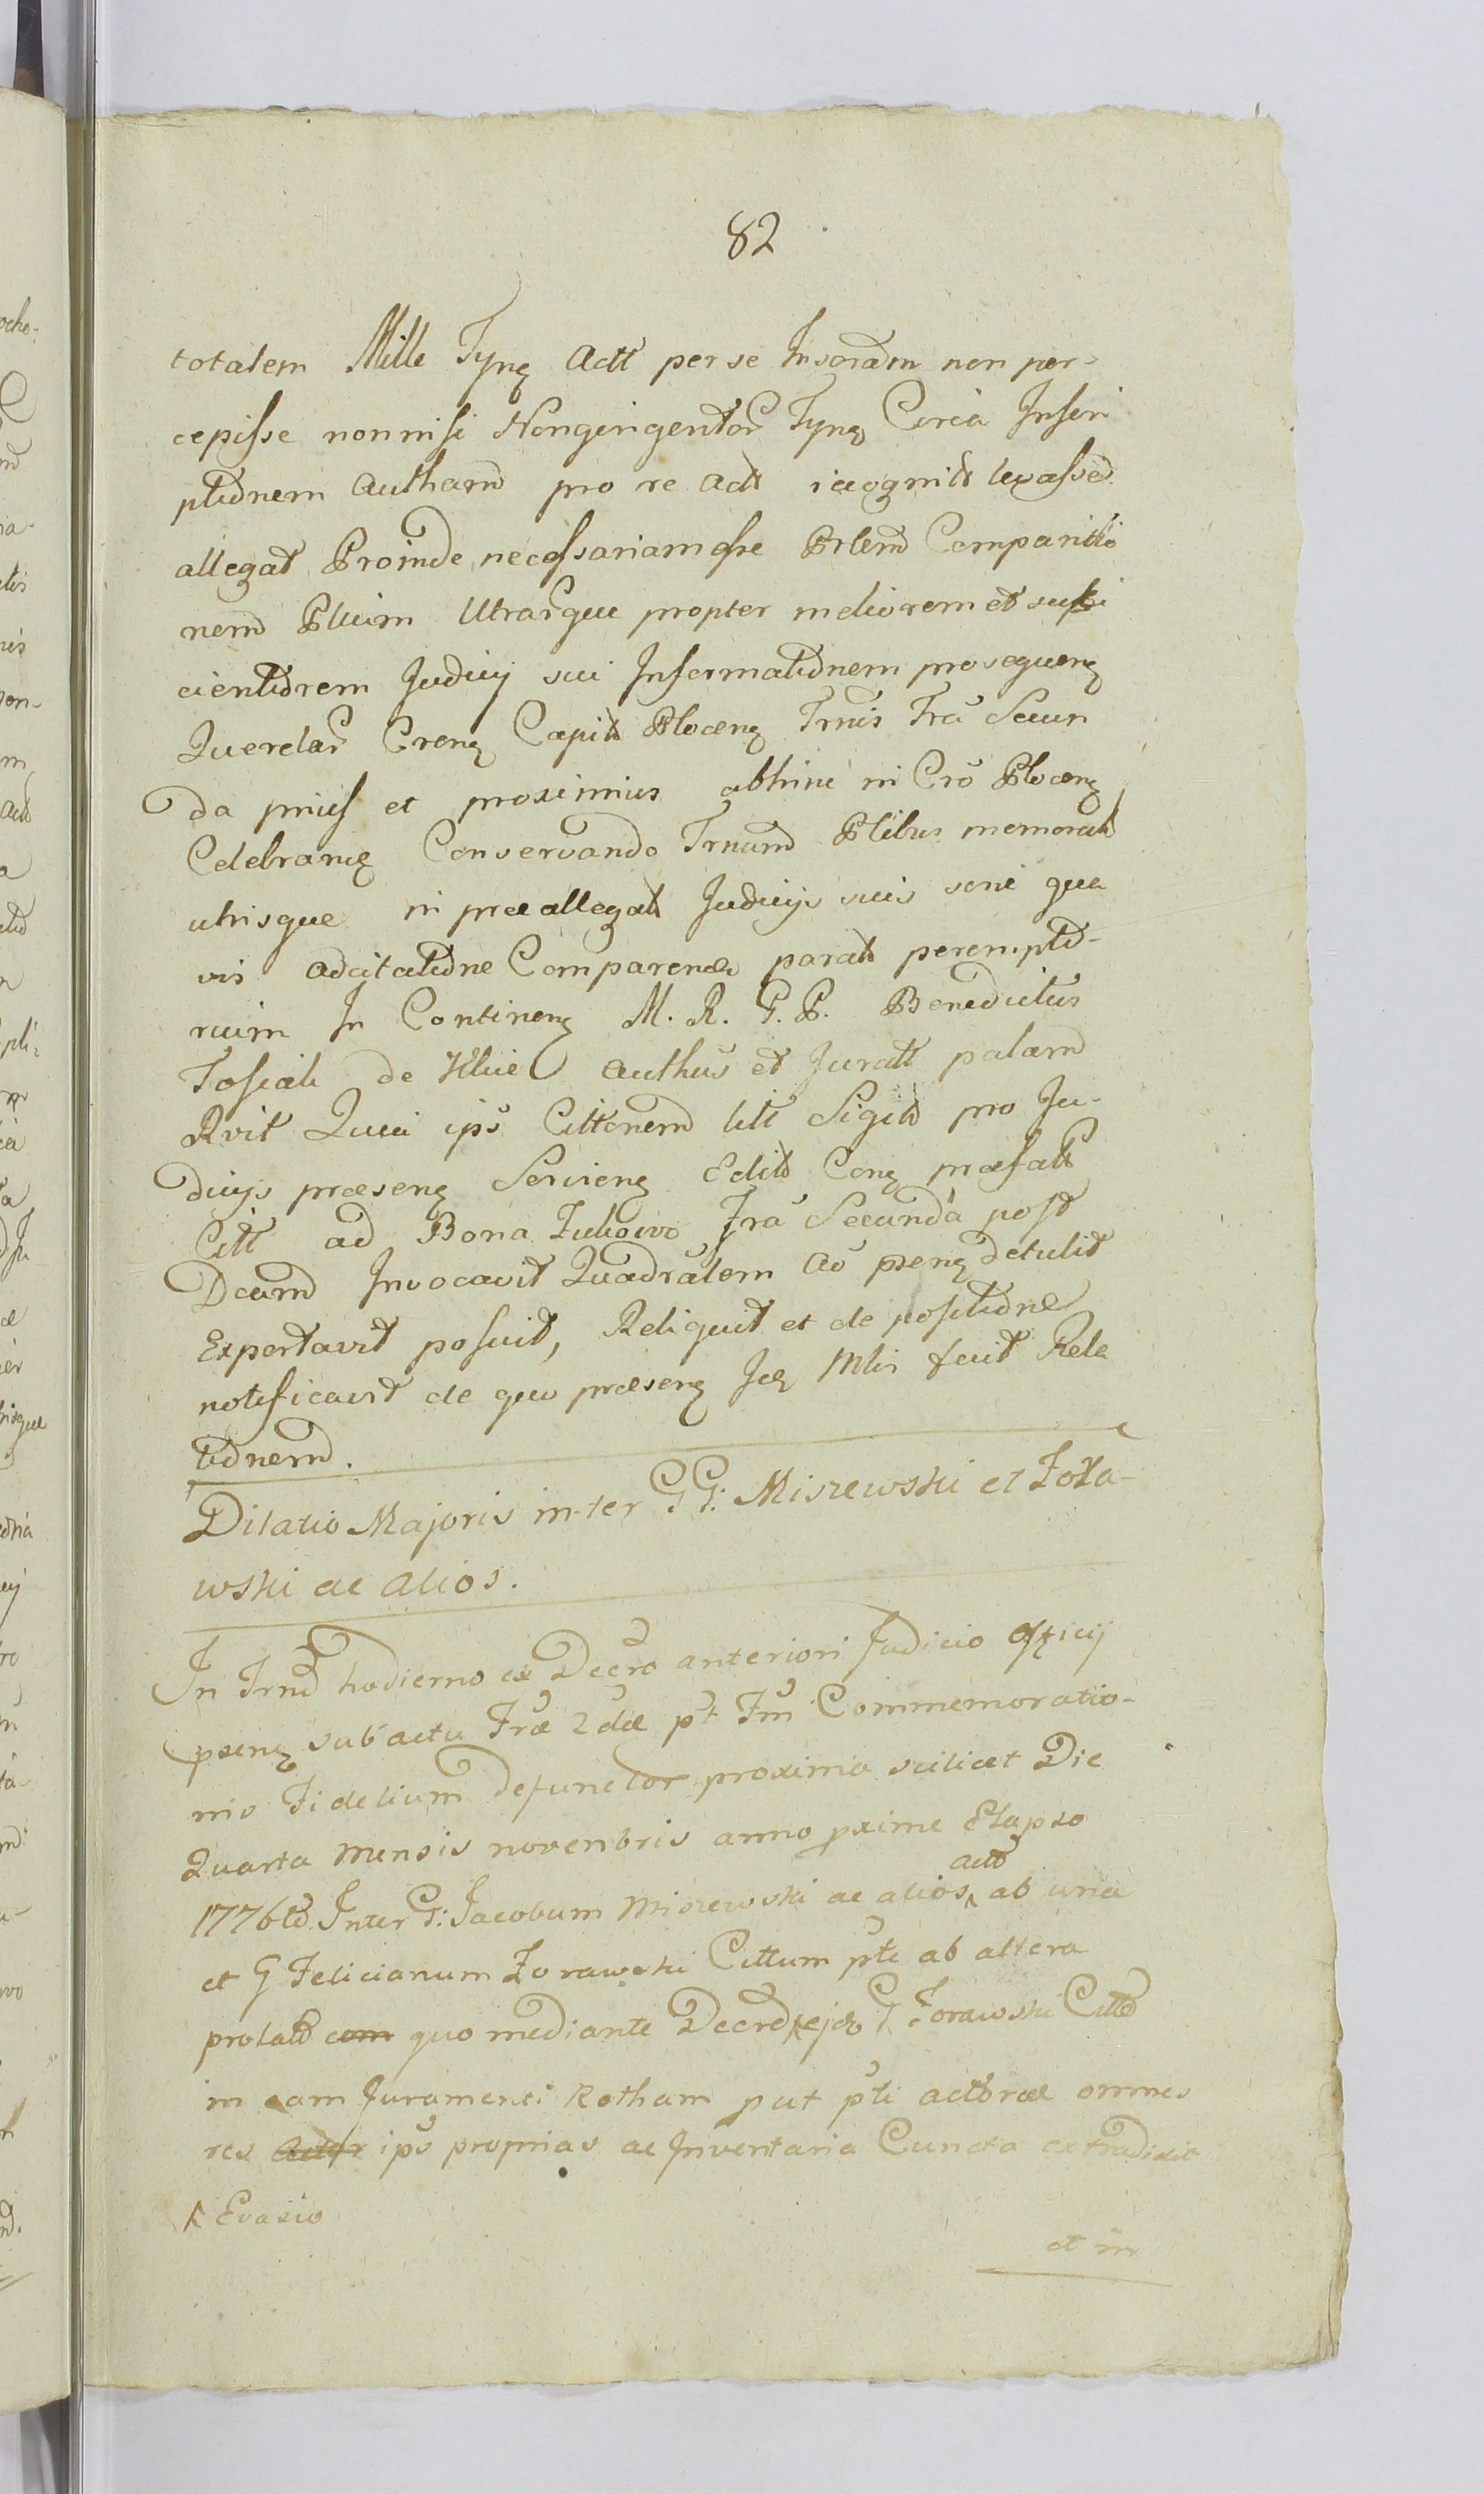 82
totalem Mille Tynꝫ Actt per se Insorãm non per-
cepisse non nisi Nongingentor Tynꝫ Circa Inscri
ptionem Autham pro re Actt recognit levasse
allegat Proinde necessariam esse Prlem Comparitio
nem Ptium Utrarque propter meliorem et suffi
cientiorem Judicij sui Informationem prosequenꝫ
Querelar Crenꝫ Capit Plocenꝫ Trnis Fra Secun
da prius et proximius abhinc in Cro Plocenꝫ
Celebranꝫ Conservando Trnum Ptibus memorat
utrisque in præallegat Judicijs suis sine qua
vis adcitatione Comparendi parat perempto-
rium In Continenꝫ M. R. G. P. Benedictus
de authus et Juratt palam
Rvit Quia ips Cittonem litt Sigill pro Ju-
dicijs præsenꝫ Servienꝫ Edit Conꝫ præfatt
Citt ad Bona Fra Secunda post
Dcam Invocavit Quadralem Ao psenꝫ detulit
Exportavit posuit, Reliquit et de positione
notificavit de quo præsenꝫ Jꝫ Mlis fecit Rela
tionem.
Dilatio Majoris inter GG: Miszewski et Zora-
wski ac alios.
In Trno hodierno ex Decro anteriori Judicio Officij
psenꝫ sub actu Fræ 2dæ pt Fm Commemoratio-
nis Fidelium defunctor proxima scilicet Die
Quarta mensis novenbris anno pxime Elapso
actt
1776to. Inter G: Jacobum Miszewski ac alios ^ ab una
et G Felicianum Zorawski Cittum pte ab altera
prolato com quo mediante Decreto ^ ejꝫ G Zorawski Citto
in eam Juramenti Rotham put pti actoræ omnes
res Actor ips proprias ac Inventaria Cuncta extradixit
^ Evasio
et in